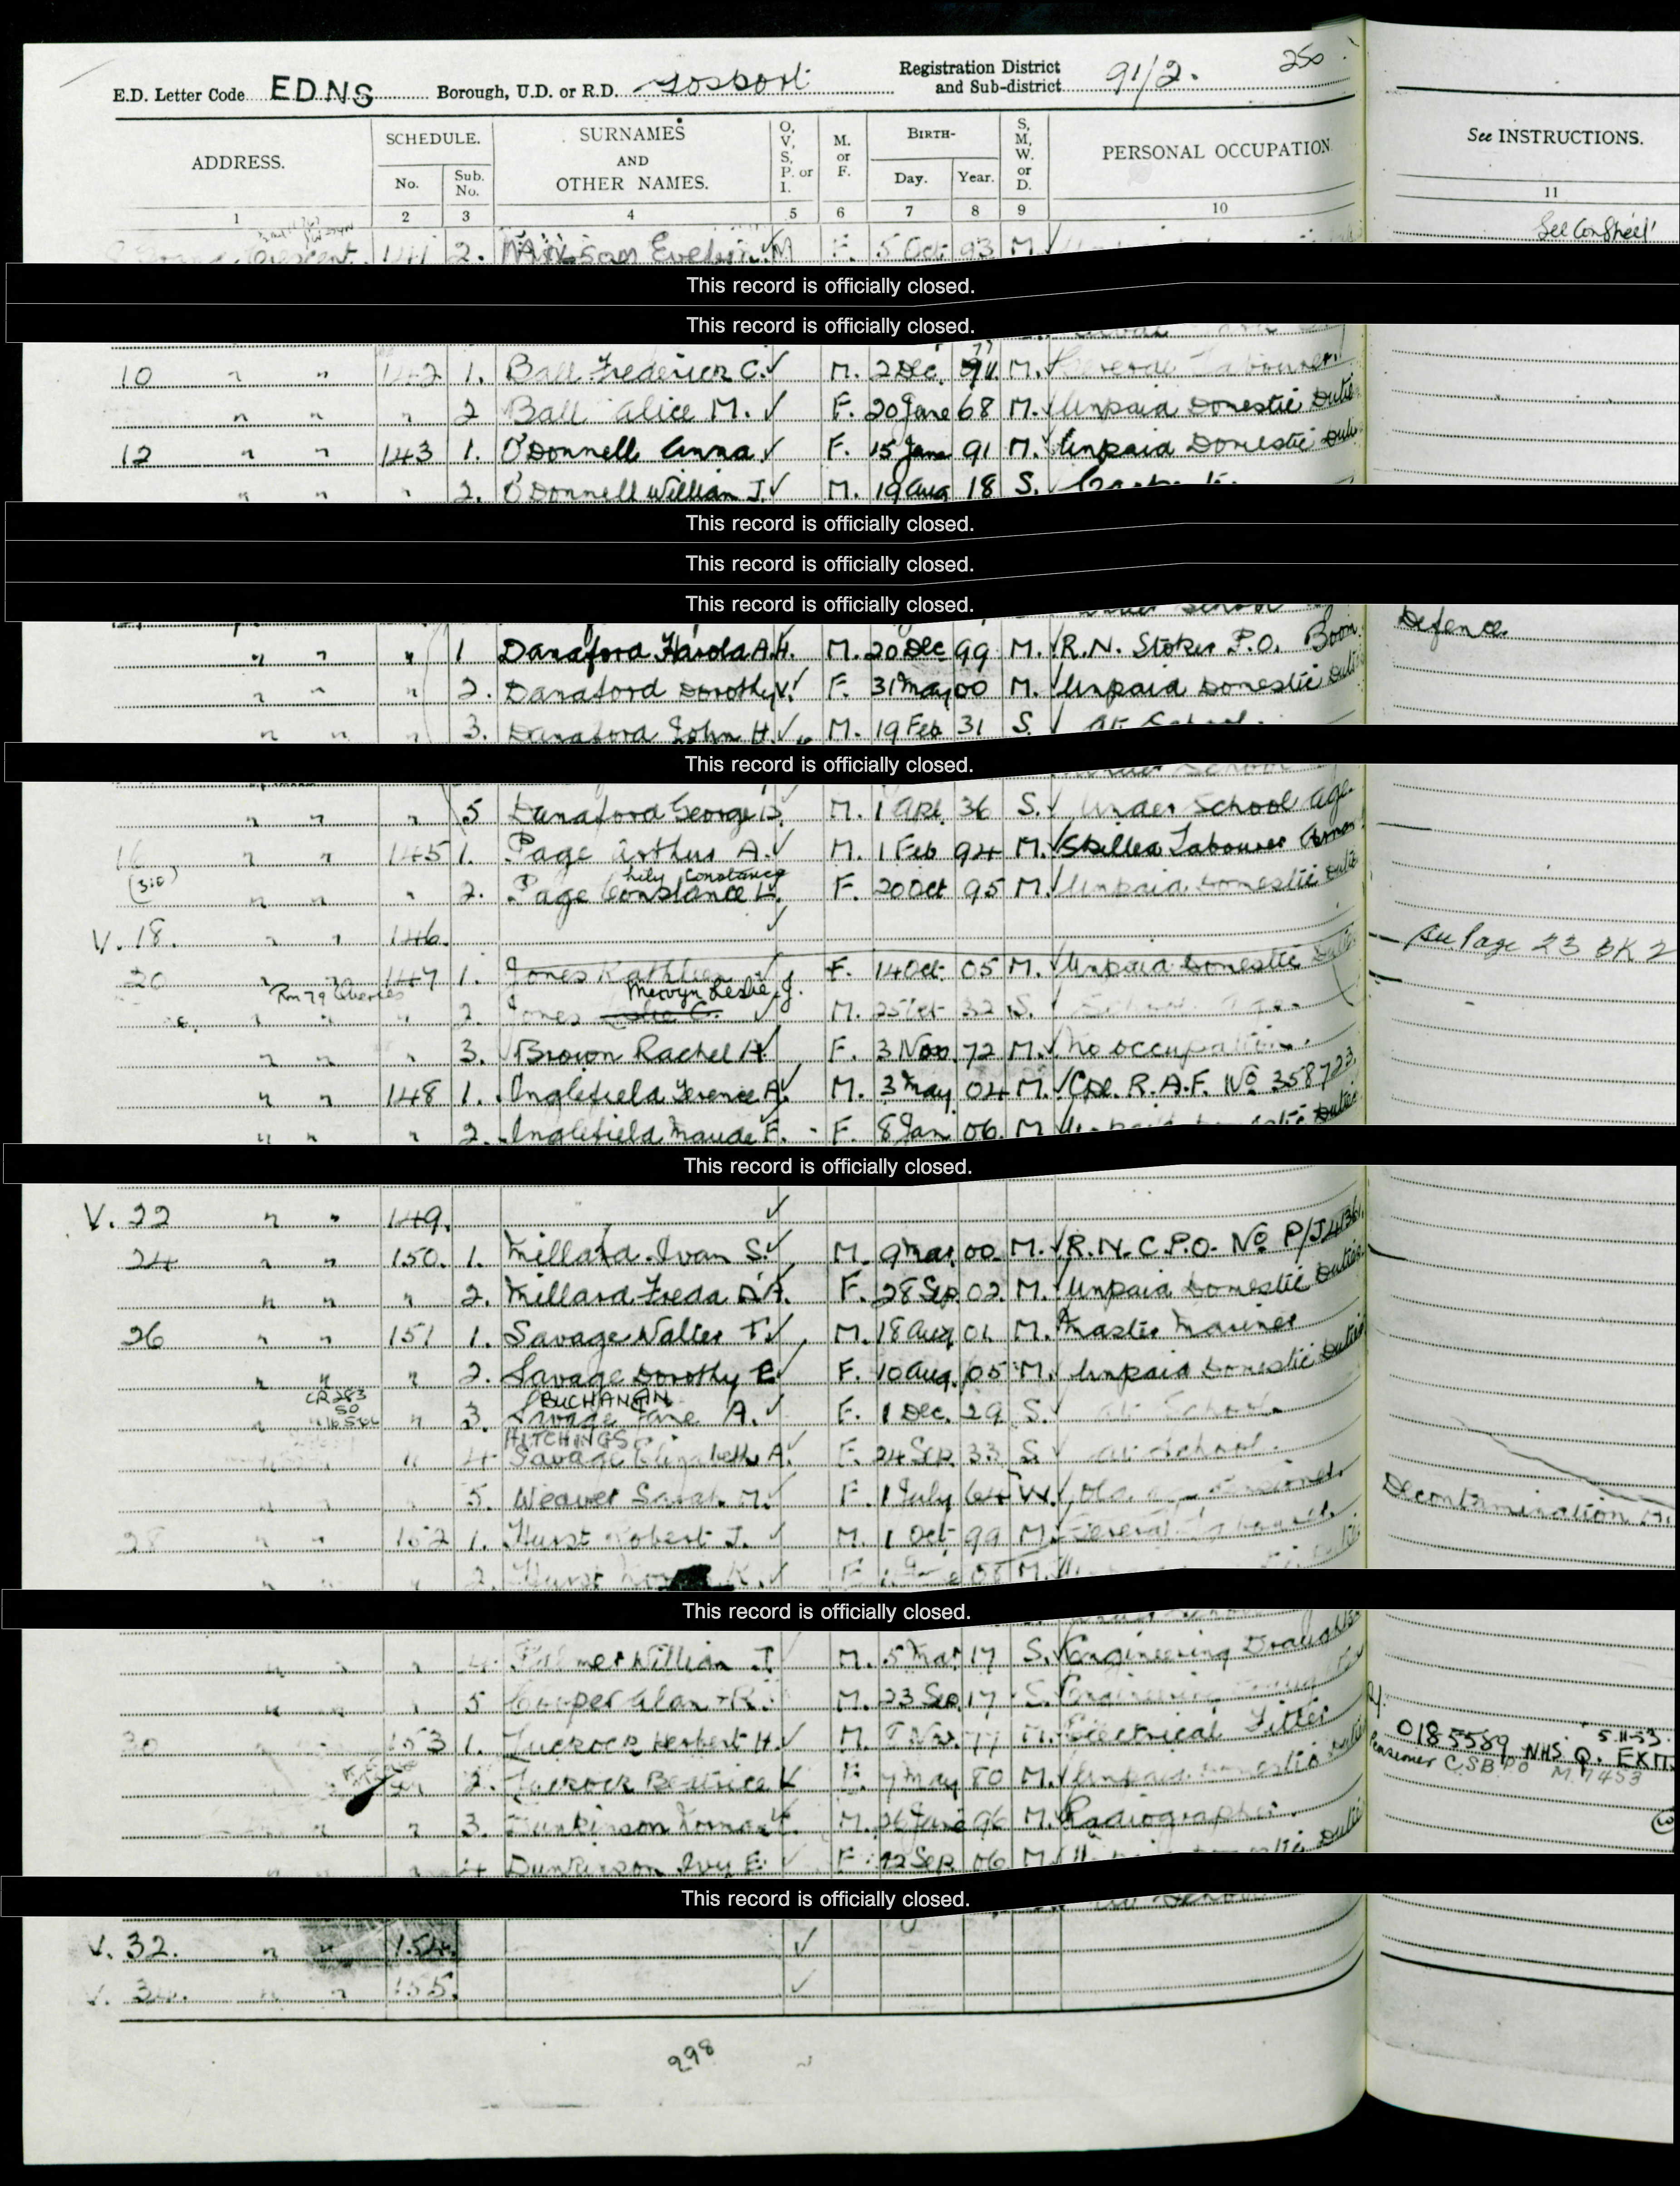 250
E.D. Letter Code EDNS Borough, U.D. or R.D. Gosport Registration District and Sub-district 91/2.
ADDRESS. SCHEDULE. No. Sub. No. SURNAMES AND OTHER NAMES. O, V, S, P. or I. M. or F. BIRTH- Day. Year. S, M, W. or D. PERSONAL OCCUPATION. See INSTRUCTIONS.
1 2 3 4 5 6 7 8 9 10 11
Crescent 141 2. Evelyn M F. 5 Oct 93 M. See Con Sheet
This record is officially closed.
This record is officially closed.
10 " " 142 1. Ball Frederick C. ✓ M. 2 Dec. 77 M. General Labourer.
" " " 2 Ball Alice M. ✓ F. 20 June 68 M. ✓ Unpaid Domestic Dutie
12 " " 143 1. O'Donnell Anna ✓ F. 15 June 91 M. Unpaid Domestic Duti
" " " 2. O'Donnell William J. ✓ M. 19 Aug 18 S.
This record is officially closed.
This record is officially closed.
This record is officially closed.
" " " 1 Danaford Harold A.H. M. 20 Dec 99 M. ✓ R.N. Stoker P.O. Boom Defence
" " " 2. Danaford Dorothy V. ✓ F. 31 May 00 M. Unpaid Domestic Duti
" " " 3. Danaford John H. ✓ M. 19 Feb 31 S. At School.
This record is officially closed.
" " " 5 Danaford George M. 1 Apl. 36 S. ✓ Under School age.
16 " " 145 1. Page Arthur A. ✓ M. 1 Feb 94 M. ✓ Skilled Labourer
(310) Lily Constance
" " " 2. Page Constance L. F. 20 Oct 95 M. ✓ Unpaid Domestic Dutie
V. 18. " " 146. ✓ See Page 23 BK 2
20 " " 147 1. Jones Kathleen ✓ F. 14 Oct 05 M. ✓ Unpaid Domestic Dutie
Mervyn Leslie J.
" " " 2. Jones Leslie C. ✓ M. 25 Oct 32 S. School age.
" " " 3. Brown Rachel A. F. 3 Nov. 72 M. ✓ No occupation.
" " 148 1. Inglefield Terence A. ✓ M. 3 May 04 M. ✓ Cpl. R.A.F. No 358723.
" " " 2. Inglefield Maude F. F. 8 Jan 06. M Unpaid Domestic Dutie
This record is officially closed.
V. 22 " " 149. ✓
24 " " 150. 1. Millard Ivan S. ✓ M. 9 Mar. 00 M. ✓ R.N. C.P.O. No P/J
" " " 2. Millard Freda D'A. F. 28 Sep 02. M. ✓ Unpaid Domestic Duties
26 " " 151 1. Savage Walter T. ✓ M. 18 Aug 01. M. Master Mariner
" " " 2. Savage Dorothy E ✓ F. 10 Aug. 05 M. ✓ Unpaid Domestic Duties
CR283 BUCHANAN
50
" " 3. Savage Jane A. ✓ F. 1 Dec. 29 S. At School.
HITCHINGS
" 4 Savage Elizabeth A. ✓ F. 24 Sep. 33 S. ✓ At School.
" " " 5. Weaver Sarah M. ✓ F. 1 July 64 W. Old age Pensioner.
28 " " 152 1. Hurst Robert J. ✓ M. 1 Oct 99 M. General Labourer. Decontamination
" " " 2. Hurst K. ✓ F. 08 M.
This record is officially closed.
" " " 4. Palmer William J. M. 5 Mar 17 S. ✓ Engineering Draughts
" " " 5 Cooper Alan R. M. 23 Sep. 17 S. Engineering
30 153 1. Tuckock Herbert H. ✓ M. Nov. 77 M. Electrical Fitter
0185589 NHS Q. EXM. 5.11.53.
Pensioner CSB PO M.7453
2. Tuckock Beatrice K F. 7 May 80 M. ✓ Unpaid Domestic Dutie
" " 3. Dunkinson Norman M. 26 June 96 M. Radiographer.
" " 4 Dunkinson Ivy E. ✓ F. 12 Sep. 06 M. Unpaid Domestic Dutie
This record is officially closed.
V. 32. " " 154. ✓
V. 34. " " 155. ✓
298